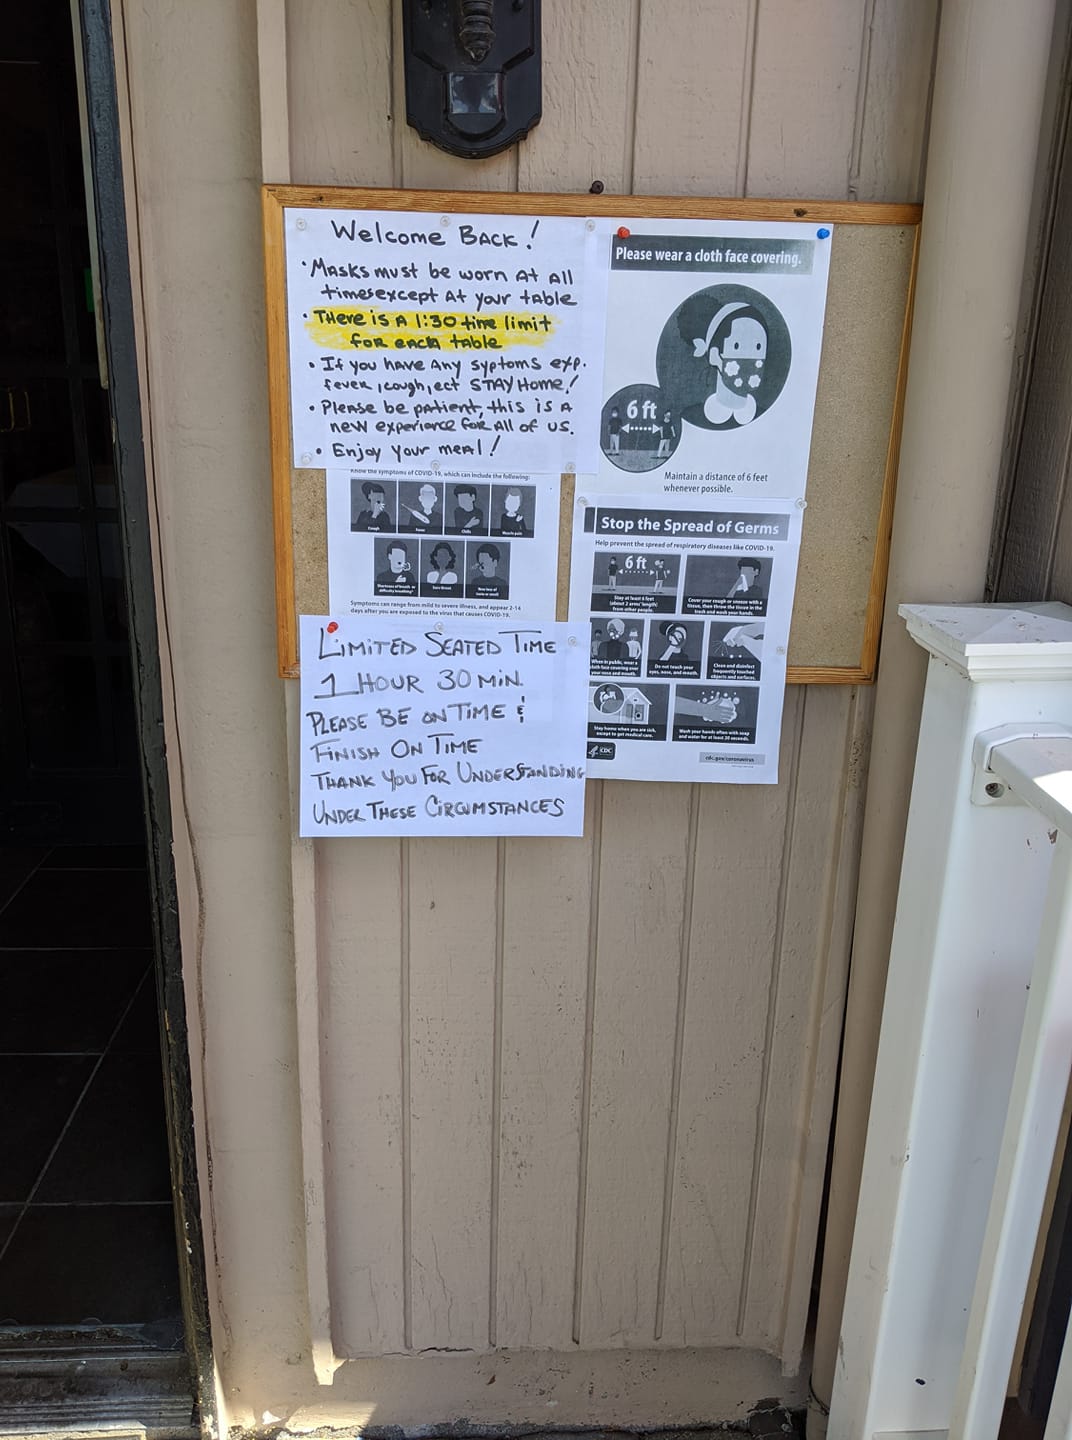 Welcome BACK!
• MASKS must be worn At All
times except At your table
• THere is A 1:30 time limit
for each table
• If you have Any syptoms exp.
fever, cough, ect STAY Home!
• Please be patient, this is A
new experience for All of us.
• Enjoy your meal!
Know the symptoms of COVID-19, which can include the following:
Cough
Fever
Chills
Muscle pain
Shortness of breath or
difficulty breathing*
Sore throat
New loss of
taste or smell
Symptoms can range from mild to severe illness, and appear 2-14
days after you are exposed to the virus that causes COVID-19.
LIMITED SEATED TIME
1 HOUR 30 MIN.
PLEASE BE ON TIME &
FINISH ON TIME
THANK YOU FOR UNDERSTANDING
UNDER THESE CIRCUMSTANCES
Please wear a cloth face covering.
6 ft
Maintain a distance of 6 feet
whenever possible.
Stop the Spread of Germs
Help prevent the spread of respiratory diseases like COVID-19.
6 ft
Stay at least 6 feet
(about 2 arms' length)
from other people.
Cover your cough or sneeze with a
tissue, then throw the tissue in the
trash and wash your hands.
When in public, wear a
cloth face covering over
your nose and mouth.
Do not touch your
eyes, nose, and mouth.
Clean and disinfect
frequently touched
objects and surfaces.
Stay home when you are sick,
except to get medical care.
Wash your hands often with soap
and water for at least 20 seconds.
CDC
cdc.gov/coronavirus